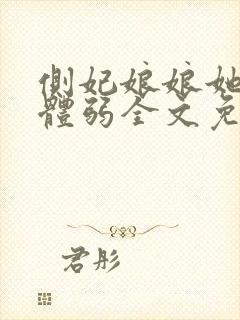 側妃娘娘她
體弱全文免
君彤